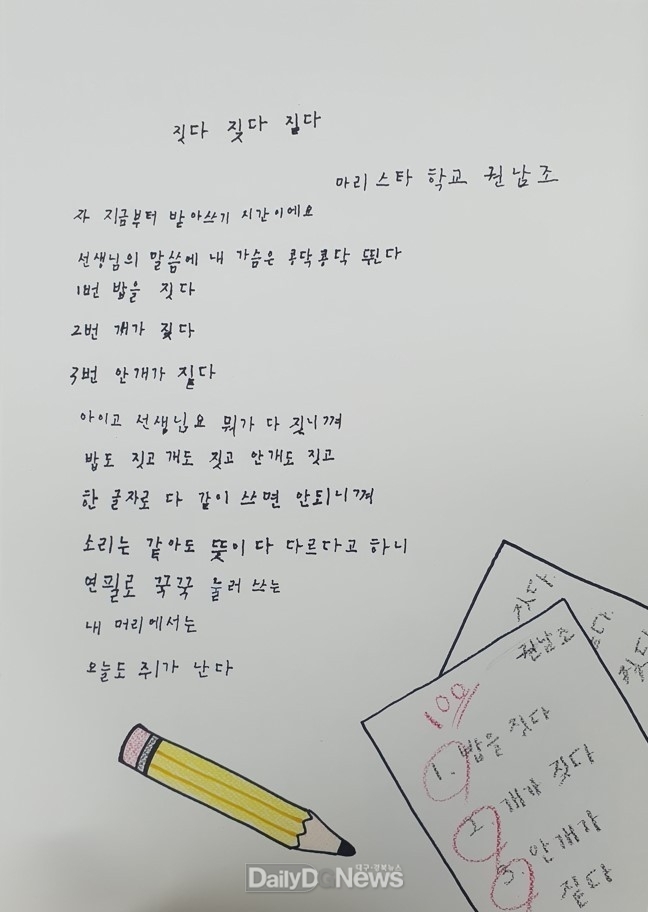 짓다 짖다 짙다
마리스타 학교 권남조
자 지금부터 받아쓰기 시간이에요
선생님의 말씀에 내 가슴은 콩닥콩닥 뛴다
1번 밥을 짓다
2번 개가 짖다
3번 안개가 짙다
아이고 선생님요 뭐가 다 짖니껴
밥도 짓고 개도 짓고 안개도 짓고
한 글자로 다 같이 쓰면 안되니껴
소리는 같아도 뜻이 다 다르다고 하니
연필로 꾹꾹 눌러 쓰는
내 머리에서는
오늘도 쥐가 난다
짓다
권남조
100
1. 밥을 짓다
2. 개가 짖다
3. 안개가
짙다
대구·경북뉴스
DailyDGNews